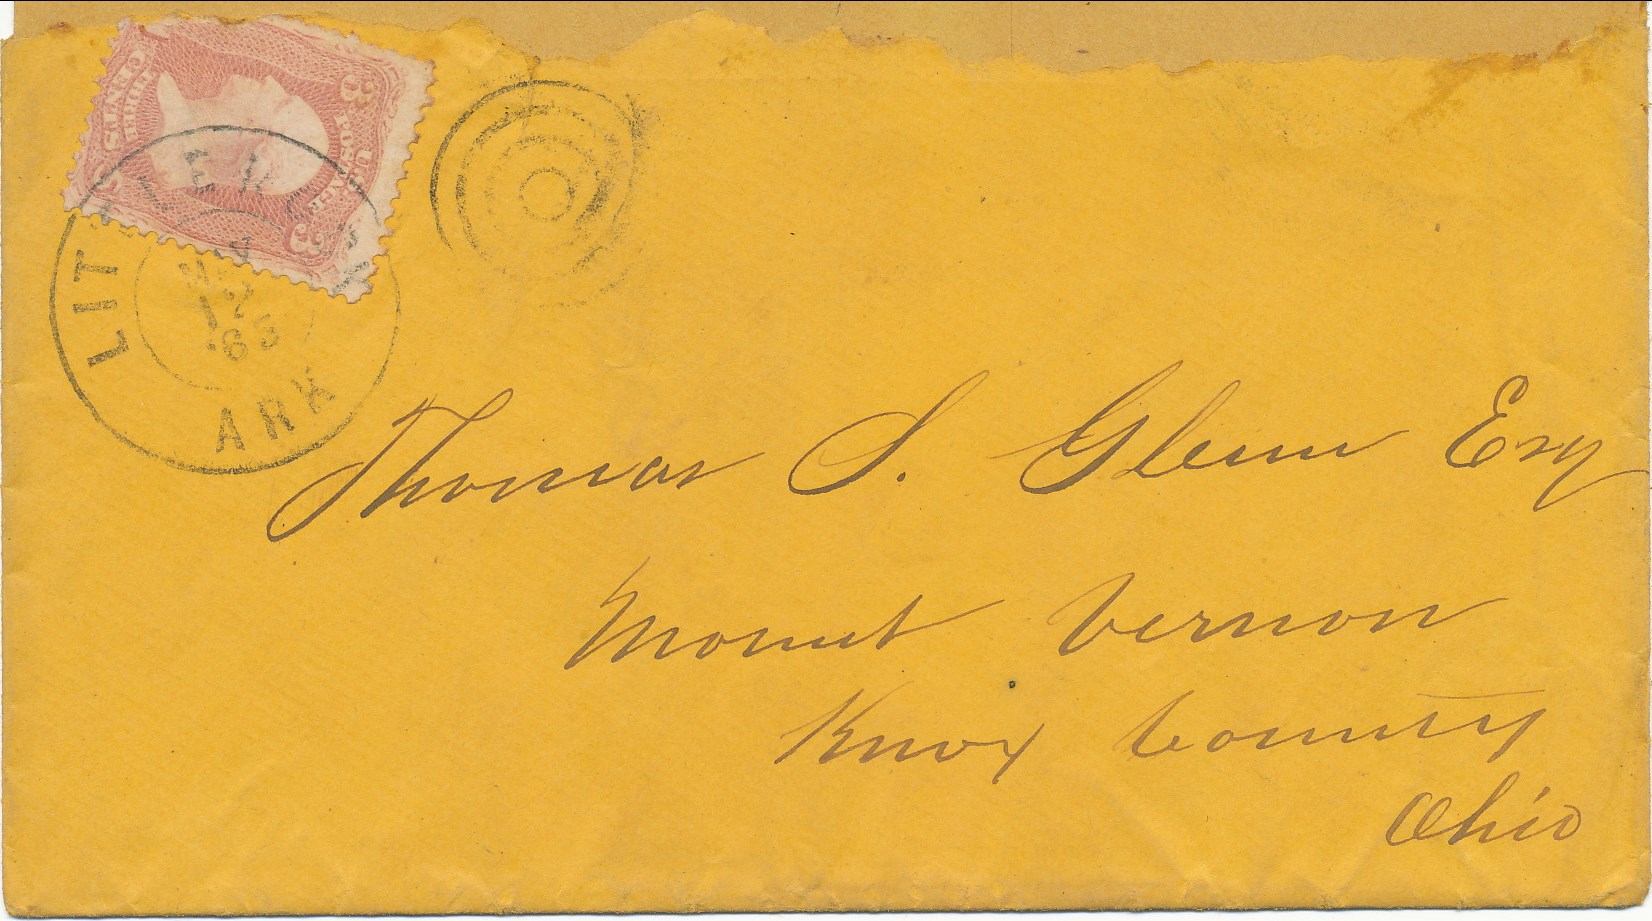 3 U.S. POSTAGE 3
THREE CENTS
LITTLE ROCK
17
'65
ARK
Thomas S. Glenn Esq
Mount Vernon
Knox County
Ohio